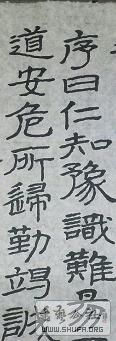 序曰仁知豫識難易
道安危所歸勤竭誠
WWW.SHUFA.ORG